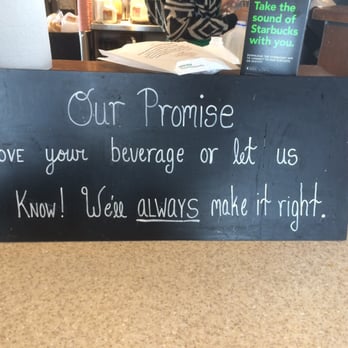 Take the
sound of
Starbucks
with you.
Our Promise
OVE your beverage or let us
Know! We'll ALWAYS make it right.